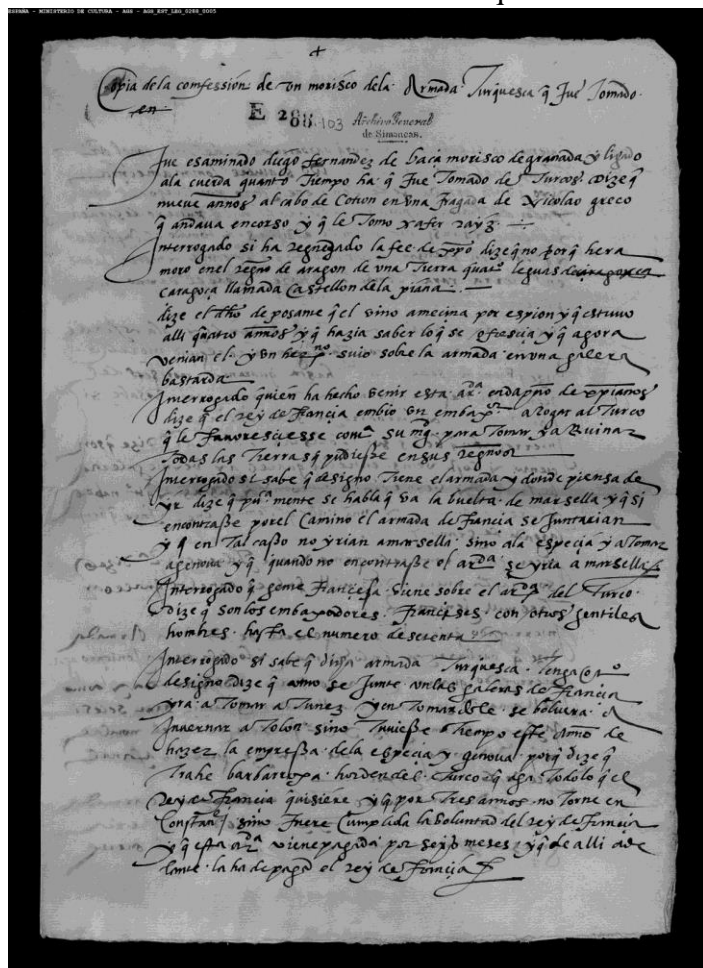 ESPAÑA - MINISTERIO DE CULTURA - AGS - AGS_EST_LEG_0288_0005
+
Copia de la comfession de vn morisco dela Armada Turquesca q̃ fue Tomado
en
E 288-103 Archivo General
de Simancas.
fue esaminado diego fernandez de baça morisco de granada y ligado
ala cuerda quanto Tiempo ha q̃ fue Tomado de Turcos. dize q̃
nueve annos al cabo de Cotron en vna fragada de Nicolao greco
q̃ andava encorso y q̃ le Tomo xafer rayz
Interrogado si ha regnegado la fee de xp̃o dize q̃ no porq̃ hera
moro enel regno de aragon de vna Tierra quatº leguas de
caragoça llamada Castellon dela plana
dize el dh̃o de posame q̃ el vino amecina por espion y q̃ estuvo
alli quatro annos y q̃ hazia saber lo q̃ se ofrescia y q̃ agora
venian el y vn hermº suio sobre la armada en vna galera
bastarda
Interrogado quien ha hecho venir esta arᵃ en dapño de xp̃ianos
dize q̃ el rey de francia embio vn embaxᵒʳ a rogar al Turco
q̃ le favoresciesse com su para Tomar ya Ruinar
Todas las Tierras q̃ pudiesse en sus regnos
Interrogado si sabe q̃ designo Tiene el armada y donde piensa de
yr dize q̃ mente se habla q̃ va la buelta de marsella y q̃ si
encontrasse por el Camino el armada de francia se Juntarian
y q̃ en Tal casso no yrian amarsella sino ala especia y a Tomar
agenova y q̃ quando no encontrasse el arᵈᵃ se yria a marsella
Interrogado q̃ gente francesa viene sobre el arᵈᵃ del Turco
dize q̃ son los embaxadores franceses con otros gentiles
hombres hasta el numero de setenta
Interrogado si sabe q̃ dicha armada Turquesca Tenga
designo dize q̃ como se Junte con las galeras de francia
yra a Tomar a Tunez y en Tomandole se bolvera a
Invernar a Tolon sino Tuviesse Tiempo este anno de
hazer la empressa dela especia y genova porq̃ dize q̃
Trahe barbarroxa horden del Turco q̃ aga Todo lo q̃ el
Rey de francia quisiere y q̃ por Tres annos no Torne en
sino fuere Cumplida la boluntad del rey de francia
y q̃ esta arᵈᵃ viene pagada por seys meses y q̃ de alli ade
lante la ha de pagar el rey de francia